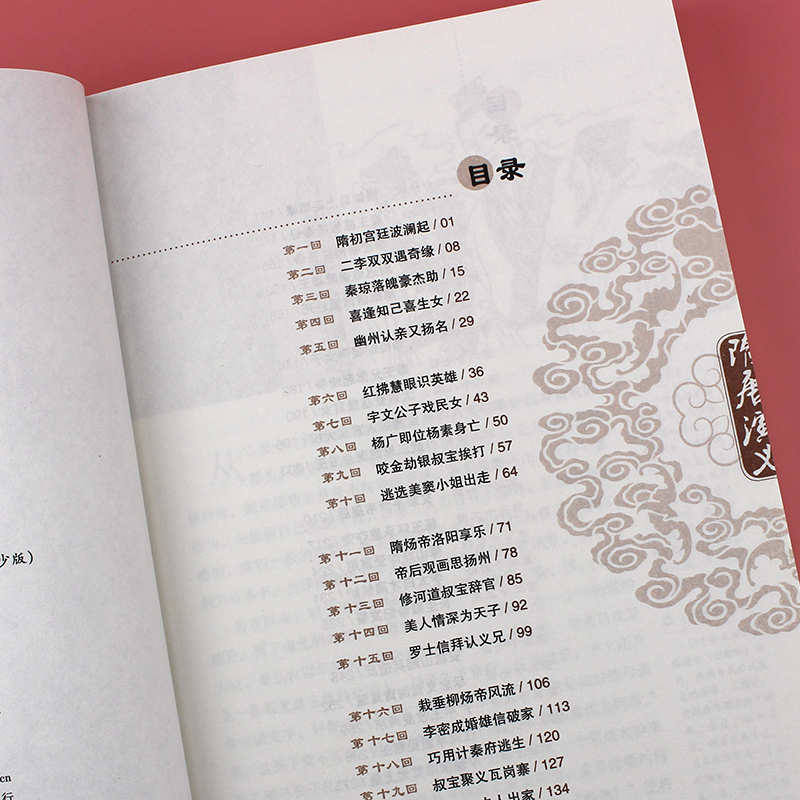 目录
第一回 隋初宫廷波澜起 / 01
第二回 二李双双遇奇缘 / 08
第三回 秦琼落魄豪杰助 / 15
第四回 喜逢知己喜生女 / 22
第五回 幽州认亲又扬名 / 29
第六回 红拂慧眼识英雄 / 36
第七回 宇文公子戏民女 / 43
第八回 杨广即位杨素身亡 / 50
第九回 咬金劫银叔宝挨打 / 57
第十回 逃选美窦小姐出走 / 64
第十一回 隋炀帝洛阳享乐 / 71
第十二回 帝后观画思扬州 / 78
第十三回 修河道叔宝辞官 / 85
第十四回 美人情深为天子 / 92
第十五回 罗士信拜认义兄 / 99
第十六回 栽垂柳炀帝风流 / 106
第十七回 李密成婚雄信破家 / 113
第十八回 巧用计秦府逃生 / 120
第十九回 叔宝聚义瓦岗寨 / 127
人出家 / 134
隋唐演义
少版）
cn
行